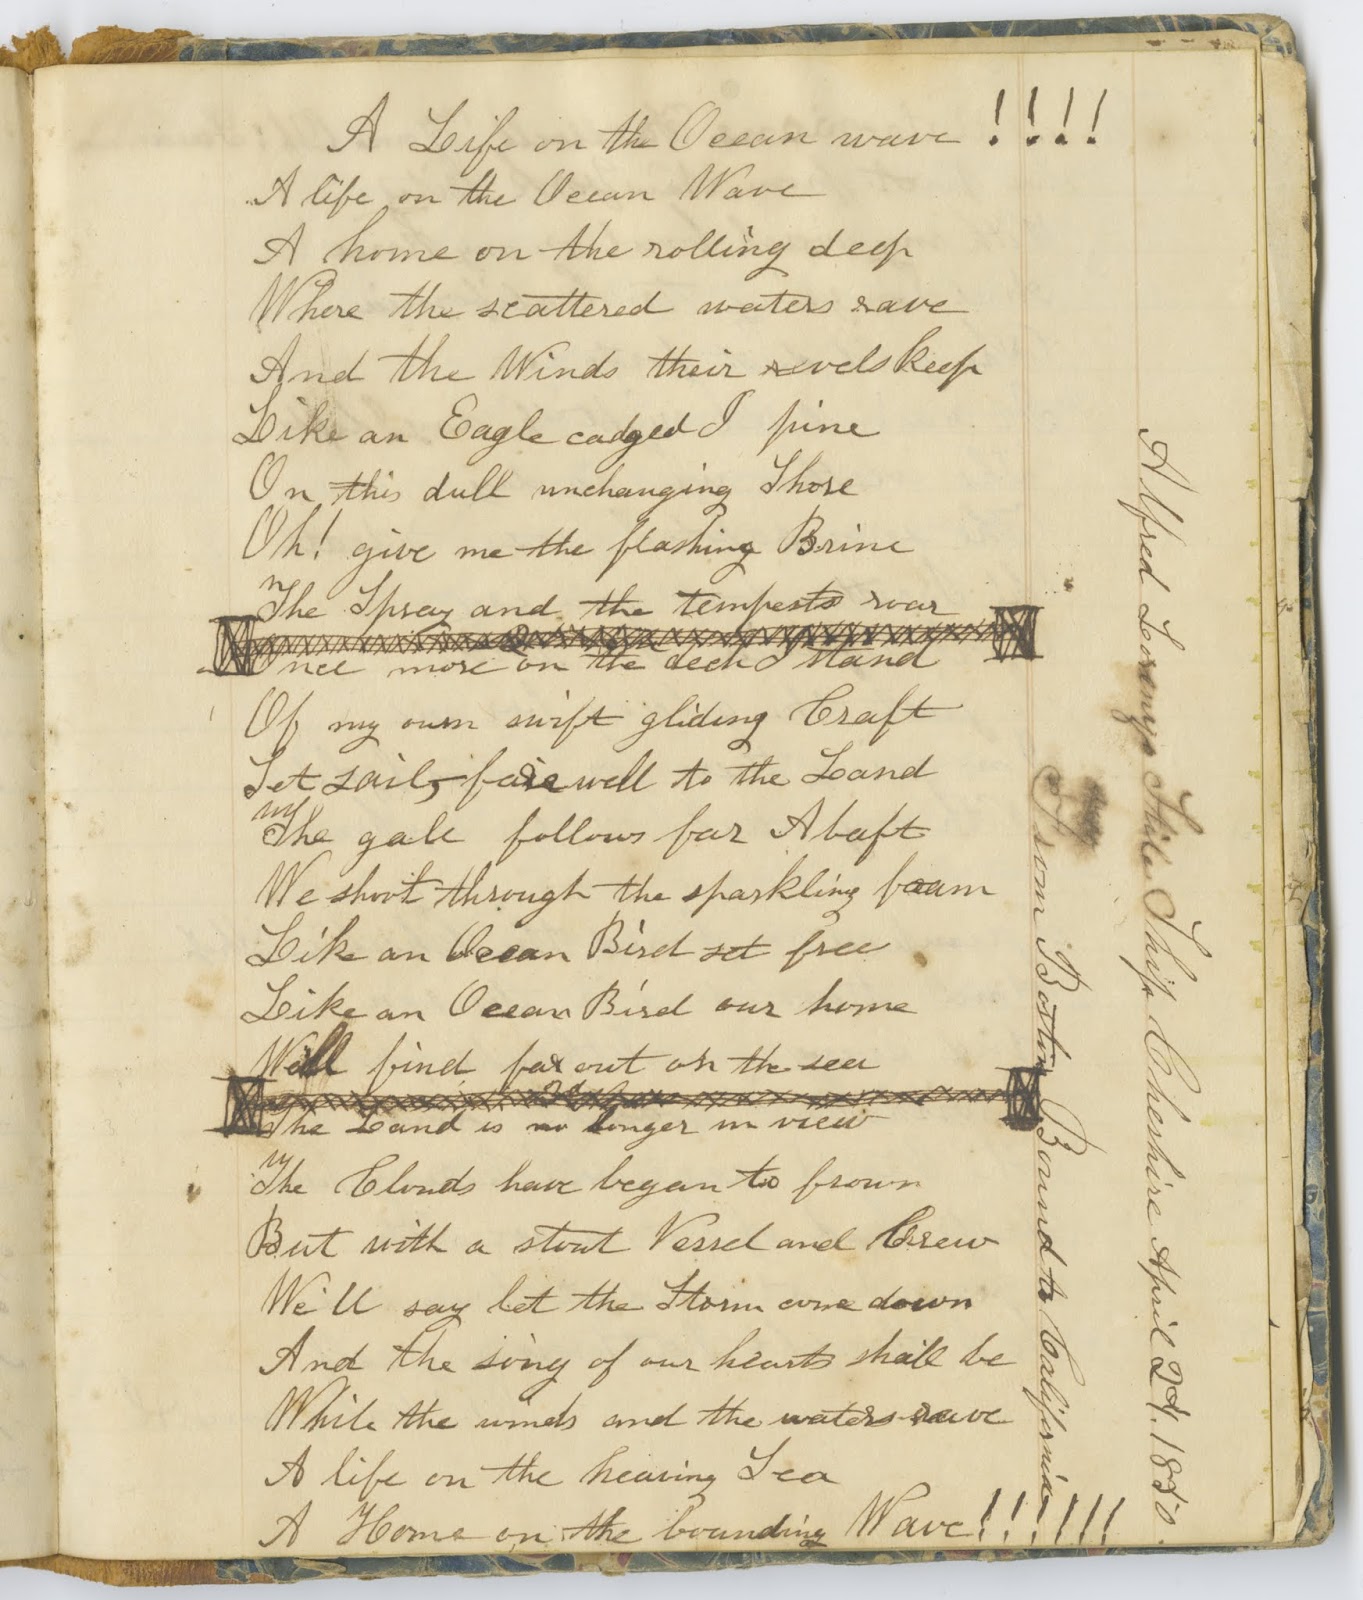 A Life on the Ocean wave !!!!
A life on the Ocean Wave
A home on the rolling deep
Where the scattered waters rave
And the Winds their revels keep
Like an Eagle cadged I pine
On this dull unchanging Shore
Oh! give me the flashing Brine
The Spray and the tempests roar
Once more on the deck I stand
Of my own swift gliding Craft
Set sail, farewell to the Land
The gale follows far Abaft
We shoot through the sparkling foam
Like an Ocean Bird set free
Like an Ocean Bird our home
We'll find far out on the sea
The Land is no longer in view
The Clouds have began to frown
But with a stout Vessel and Crew
We'll say let the Storm come down
And the song of our hearts shall be
While the winds and the waters rave
A life on the heaving Sea
A Home on the bounding Wave!!!!!!
Alfred Ship Cheshire April 27. 1850.
From Boston Bound to California